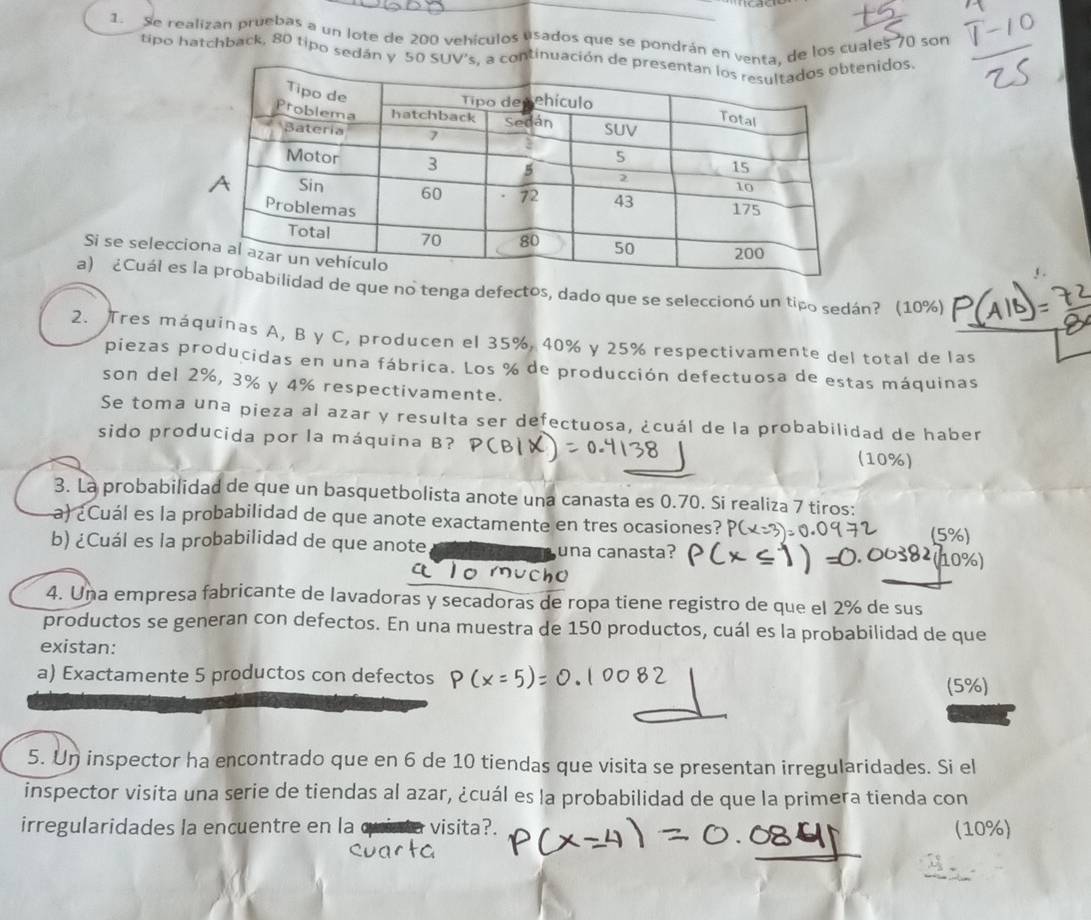 1. Se realizan pruebas a un lote de 200 vehículos usados que se pondrán en venta, de los cuales 70 son
tipo hatchback, 80 tipo sedán y 50 SUV's, a continuación de presentan los resultados obtenidos.
+5
T-10
25
Tipo de Problema Tipo de vehículo Total
hatchback Sedán SUV
Bateria 7 3 5 15
Motor 3 5 2 10
A Sin Problemas 60 72 43 175
Total 70 80 50 200
Si se selecciona al azar un vehículo
a) ¿Cuál es la probabilidad de que no tenga defectos, dado que se seleccionó un tipo sedán? (10%) P(A|B)= 72
2. Tres máquinas A, B y C, producen el 35%, 40% y 25% respectivamente del total de las
piezas producidas en una fábrica. Los % de producción defectuosa de estas máquinas
son del 2%, 3% y 4% respectivamente.
Se toma una pieza al azar y resulta ser defectuosa, ¿cuál de la probabilidad de haber
sido producida por la máquina B? P(B|X) = 0.4138
(10%)
3. La probabilidad de que un basquetbolista anote una canasta es 0.70. Si realiza 7 tiros:
a) ¿Cuál es la probabilidad de que anote exactamente en tres ocasiones? P(x=3)=0.0972 (5%)
b) ¿Cuál es la probabilidad de que anote una canasta? P(x ≤ 1) =0.00382 (10%)
a lo mucho
4. Una empresa fabricante de lavadoras y secadoras de ropa tiene registro de que el 2% de sus
productos se generan con defectos. En una muestra de 150 productos, cuál es la probabilidad de que
existan:
a) Exactamente 5 productos con defectos P(x=5)=0.10082
(5%)
5. Un inspector ha encontrado que en 6 de 10 tiendas que visita se presentan irregularidades. Si el
inspector visita una serie de tiendas al azar, ¿cuál es la probabilidad de que la primera tienda con
irregularidades la encuentre en la visita?. P(x=4) = 0.084 (10%)
cuarta